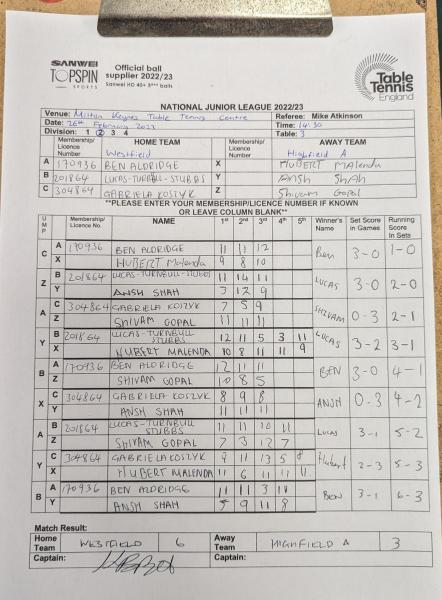 SANWEI
TOPSPIN
SPORTS
Official ball
supplier 2022/23
Sanwei HD 40+ 3*** balls
Table
Tennis
England
NATIONAL JUNIOR LEAGUE 2022/23
Venue: Milton Keynes Table Tennis Centre Referee: Mike Atkinson
Date: 26th February 2023 Time: 14:30
Division: 1 2 3 4 Table: 3
Membership/ Licence Number HOME TEAM Membership/ Licence Number AWAY TEAM
Westfield Highfield A
A 170936 BEN ALDRIDGE X HUBERT Malenda
B 201864 LUCAS-TURNBULL-STUBBS Y ANSH SHAH
C 304864 GABRIELA KOSZYK Z Shivam Gopal
**PLEASE ENTER YOUR MEMBERSHIP/LICENCE NUMBER IF KNOWN
OR LEAVE COLUMN BLANK**
UMP Membership/ Licence No. NAME 1st 2nd 3rd 4th 5th Winner's Name Set Score in Games Running Score in Sets
C A 170936 BEN ALDRIDGE 11 11 12 Ben 3-0 1-0
X HUBERT Malenda 9 8 10
Z B 201864 LUCAS-TURNBULL-STUBBS 11 14 11 LUCAS 3-0 2-0
Y ANSH SHAH 3 12 9
A C 304864 GABRIELA KOSZYK 7 5 9 SHIVAM 0-3 2-1
Z SHIVAM GOPAL 11 11 11
Y B 201864 LUCAS-TURNBULL STUBBS 12 11 5 3 11 LUCAS 3-2 3-1
X HUBERT MALENDA 10 8 11 11 9
B A 170936 BEN ALDRIDGE 12 11 11 BEN 3-0 4-1
Z SHIVAM GOPAL 10 8 5
X C 304864 GABRIELA KOSZYK 8 9 8 ANSH 0-3 4-2
Y ANSH SHAH 11 11 11
A B 201864 LUCAS-TURNBULL STUBBS 11 11 10 11 LUCAS 3-1 5-2
Z SHIVAM GOPAL 7 3 12 7
Y C 304864 GABRIELA KOSZYK 9 11 13 5 8 Hubert 2-3 5-3
X HUBERT MALENDA 11 6 11 11 11
B A 170936 BEN ALDRIDGE 11 11 3 11 BEN 3-1 6-3
Y ANSH SHAH 9 11 8
Match Result:
Home Team WESTFIELD 6 Away Team HIGHFIELD A 3
Captain: Captain: